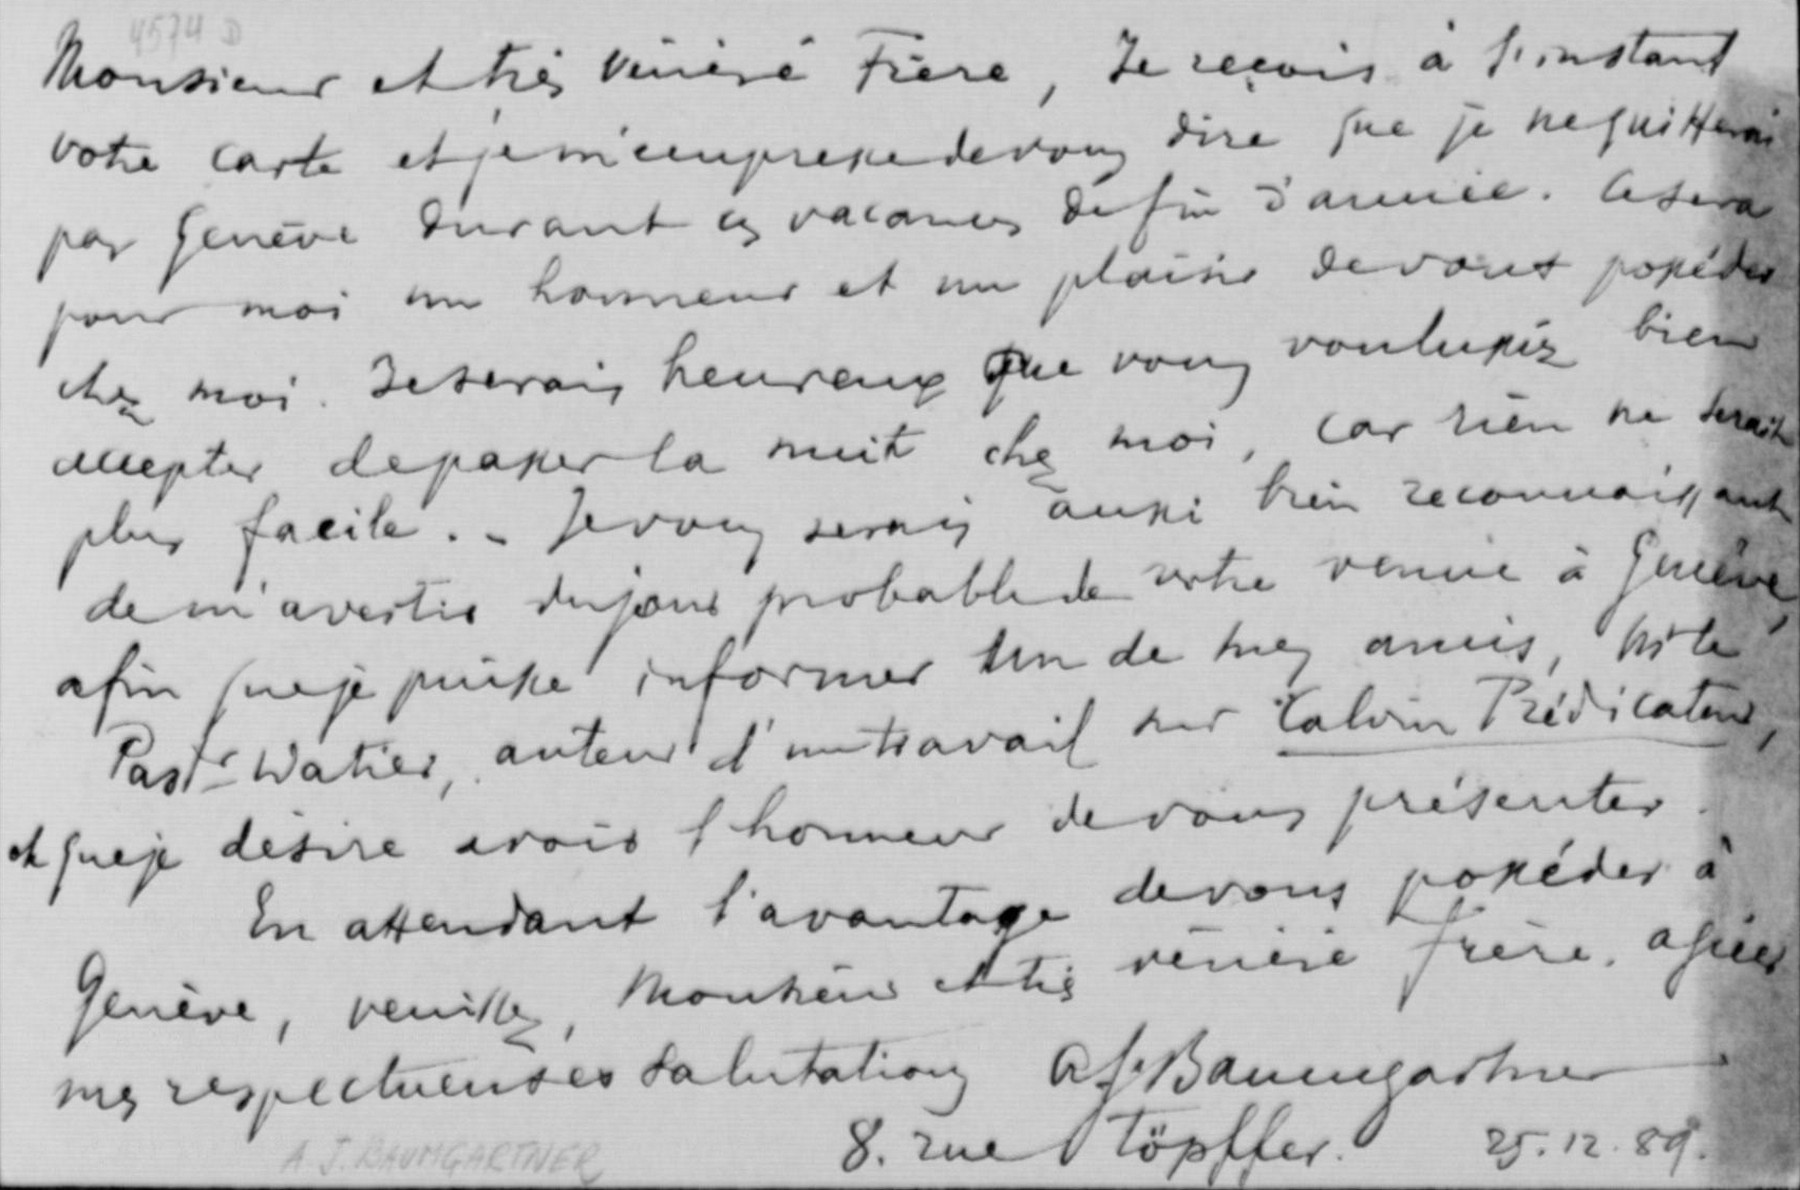 4574 D
Monsieur et très vénéré Frère, Je reçois à l'instant
votre carte et je m'empresse de vous dire que je ne quitterai
pas Genève durant ces vacances de fin d'année. Ce sera
pour moi un honneur et un plaisir de vous posséder
chez moi. Je serais heureux que vous voulussiez bien
accepter de passer la nuit chez moi, car rien ne serait
plus facile. - Je vous serais aussi bien reconnaissant
de m'avertir du jour probable de votre venue à Genève,
afin que je puisse informer un de mes amis, Mr le
Pastr Watier, auteur d'un travail sur Calvin Prédicateur,
et que je désire avoir l'honneur de vous présenter.
En attendant l'avantage de vous posséder à
Genève, veuillez, Monsieur et très vénéré frère, agréer
mes respectueuses salutations A J. Baumgartner
8. rue Töpffer. 25.12.89.
A J. BAUMGARTNER